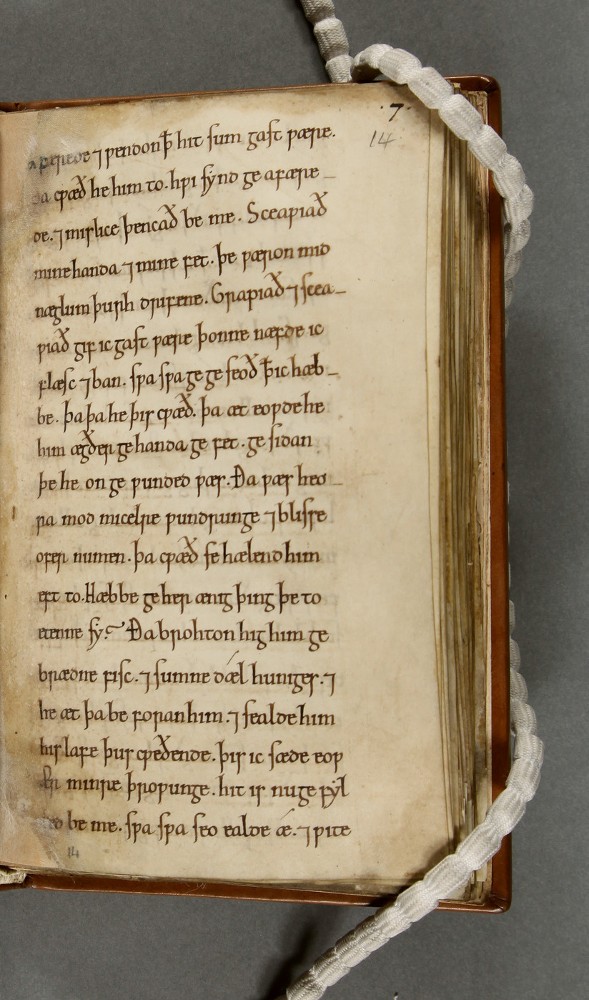 ·7·
14
afærede ⁊ ƿendon ꝥ hit sum gast ƿære.
ða cƿæð he him to. hƿi synd ge afære_
de. ⁊ mislice þencað be me. Sceaƿiað
mine handa ⁊ mine fet. þe ƿæron mid
næglum þurh drifene. Grapiað ⁊ scea_
ƿiað gif ic gast ƿære þonne næfde ic
flæsc ⁊ ban. sƿa sƿa ge ge seoð ꝥ ic hæb_
be. þa þa he þis cƿæð. þa æt eoƿde he
him ægðer ge handa ge fet. ge sidan
þe he on ge ƿunded ƿæs. Ða ƿæs heo_
ra mod micelre ƿundrunge ⁊ blisse
ofer numen. þa cƿæð se hælend him
eft to. Hæbbe ge her ænig þing þe to
etenne sy. Ða brohton hig him ge
brædne fisc. ⁊ sumne dǽl huniges. ⁊
he æt þa be foran him. ⁊ sealde him
his lafe þus cƿeðende. þis ic sæde eoƿ
minre þroƿunge. hit is nu ge fyl
be me. sƿa sƿa seo ealde ǽ. ⁊ ƿite
14